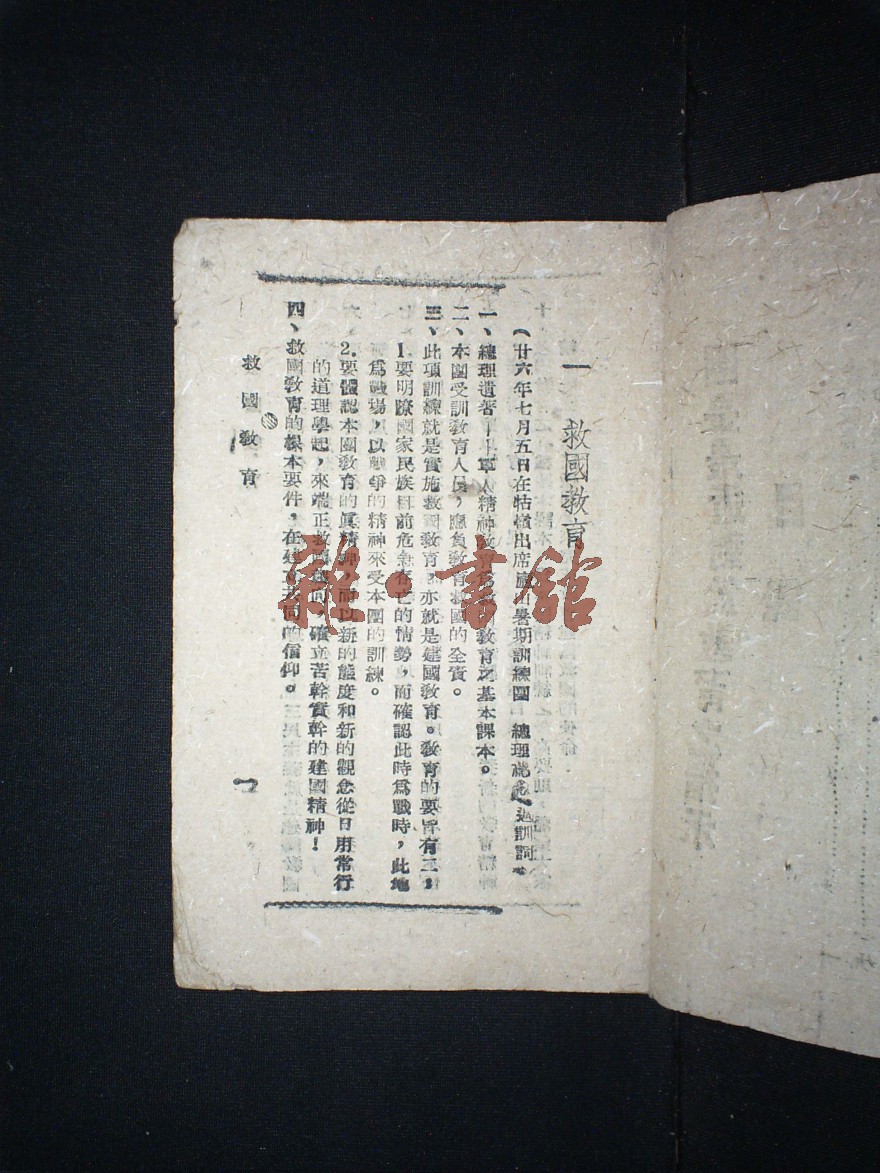 一 救國教育
（廿六年七月五日在牯嶺出席廬山暑期訓練團 總理紀念週訓詞）
一、總理遺著——軍人精神教育為救國教育之基本課本。
二、本團受訓教育人員，應負教育救國的全責。
三、此項訓練就是實施救國教育，亦就是建國教育。教育的要旨有二：
1.要明瞭國家民族目前危急存亡的情勢，而確認此時爲戰時，此地
爲戰場，以戰爭的精神來受本團的訓練。
2.要體認本團教育的眞精神，而以新的態度和新的觀念從日用常行
的道理學起，來端正救國趨向，確立苦幹實幹的建國精神！
四、救國教育的根本要件，在建立共同的信仰。
救國教育
一
雜·書館